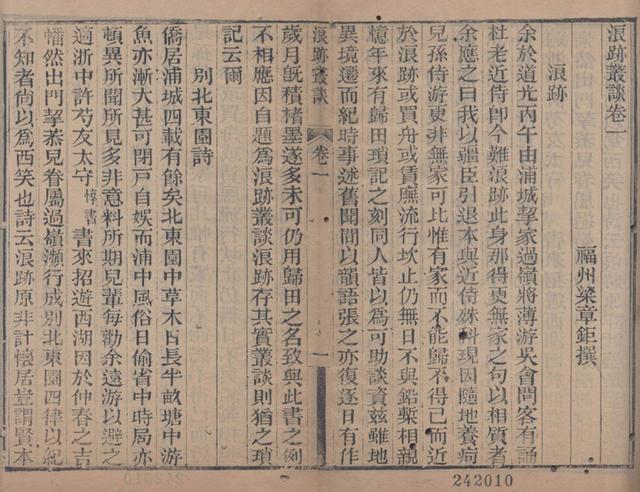 浪跡叢談卷一
福州梁章鉅撰
浪跡
余於道光丙午由浦城挈家過嶺將薄游吳會問客有誦
杜老近侍卽今難浪跡此身那得更無家之句以相質者
余應之曰我以疆臣引退本與近侍殊科現因隨地養疴
兒孫侍游更非無家可比惟有家而不能歸不得已而近
於浪跡或買舟或賃廡流行坎止仍無日不與鉛槧相親
憶年來有歸田瑣記之刻同人皆以爲可助談資茲雖地
異境遷而紀時事述舊聞間以韻語張之亦復逐日有作
浪跡叢談
卷一
一
歲月旣積楮墨遂多未可仍用歸田之名致與此書之例
不相應因自題爲浪跡叢談浪跡存其實叢談則猶之瑣
記云爾
別北東園詩
僑居浦城四載有餘矣北東園中草木日長半畝塘中游
魚亦漸大甚可閉戸自娛而浦中風俗日偷省中時局亦
頓異所聞所見多非意料所期兒輩每勸余遠游以避之
適浙中許芍友太守惇書書來招遊西湖因於仲春之吉
幡然出門挈恭兒眷屬過嶺瀕行成別北東園四律以紀
不知者尙以爲西笑也詩云浪跡原非計懷居豈謂賢本
242010